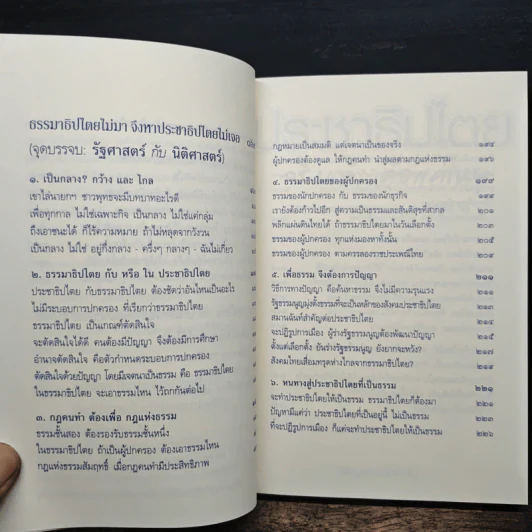 ธรรมาธิปไตยไม่มา จึงหาประชาธิปไตยไม่เจอ
(จุดบรรจบ: รัฐศาสตร์ กับ นิติศาสตร์)
๑. เป็นกลาง? กว้าง และ ไกล
เขาไล่นายกฯ ชาวพุทธจะมีบทบาทอะไรดี
เพื่อทุกกาล ไม่ใช่เฉพาะกิจ เป็นกลาง ไม่ใช่แค่กลุ่ม
ถึงเอาชนะได้ ก็ไร้ความหมาย ถ้าไม่หลุดจากวังวน
เป็นกลาง ไม่ใช่ อยู่กึ่งกลาง - ครึ่งๆ กลางๆ - ฉันไม่เกี่ยว
๒. ธรรมาธิปไตย กับ หรือ ใน ประชาธิปไตย
ประชาธิปไตย กับธรรมาธิปไตย ต้องชัดว่าอันไหนเป็นอะไร
ไม่มีระบอบการปกครอง ที่เรียกว่าธรรมาธิปไตย
ธรรมาธิปไตย เป็นเกณฑ์ตัดสินใจ
จะตัดสินใจได้ดี คนต้องมีปัญญา จึงต้องมีการศึกษา
อำนาจตัดสินใจ คือตัวกำหนดระบอบการปกครอง
ตัดสินใจด้วยปัญญา โดยมีเจตนาเป็นธรรม คือ ธรรมาธิปไตย
ในธรรมาธิปไตย จะเอาธรรมไหน ไว้ถกกันต่อไป
๓. กฎคนทำ ต้องเพื่อ กฎแห่งธรรม
ธรรมชั้นสอง ต้องรองรับธรรมชั้นหนึ่ง
ในธรรมาธิปไตย ถ้าเป็นผู้ปกครอง ต้องเอาธรรมไหน
กฎแห่งธรรมสัมฤทธิ์ เมื่อกฎคนทำมีประสิทธิภาพ
กฎหมายเป็นสมมติ แต่เจตนาเป็นของจริง ๑๙๔
ผู้ปกครองต้องดูแล ให้กฎคนทำ นำสู่ผลตามกฎแห่งธรรม ๑๙๖
๔. ธรรมาธิปไตยของผู้ปกครอง ๑๙๙
ธรรมของนักปกครอง กับ ธรรมของนักธุรกิจ ๑๙๙
เรายังต้องก้าวไปอีก สู่ความเป็นธรรมและสันติสุขที่สากล ๒๐๑
พลิกแผ่นดินไทยได้ ถ้าธรรมาธิปไตยมาในวันเลือกตั้ง ๒๐๓
ธรรมของผู้ปกครอง ทุกแห่งมองหาทั้งนั้น ๒๐๕
ธรรมของผู้ปกครอง ตามครรลองราชประเพณีไทย ๒๐๙
๕. เพื่อธรรม จึงต้องการปัญญา ๒๑๑
วิธีการทางปัญญา คือค้นหาธรรม จึงไม่มีความรุนแรง ๒๑๑
รัฐธรรมนูญมุ่งตั้งธรรมที่จะเป็นหลักของสังคมประชาธิปไตย ๒๑๓
สมานฉันท์สำคัญต่อประชาธิปไตย ๒๑๔
จะปฏิรูปการเมือง ผู้ร่างรัฐธรรมนูญต้องพัฒนาปัญญา ๒๑๕
ตั้งแต่เลือกตั้ง ยันร่างรัฐธรรมนูญ ยังยากจะหวัง? ๒๑๗
สังคมไทยเสื่อมทรุดห่างไกลจากธรรมาธิปไตย ๒๑๙
๖. หนทางสู่ประชาธิปไตยที่เป็นธรรม ๒๒๑
จะทำประชาธิปไตยให้เป็นธรรม ธรรมาธิปไตยก็ต้องมา ๒๒๑
ปัญหามีแค่ว่า ประชาธิปไตยที่เป็นอยู่นี้ ไม่เป็นธรรม ๒๒๓
ที่จะปฏิรูปการเมือง ก็แค่จะทำประชาธิปไตยให้เป็นธรรม ๒๒๖